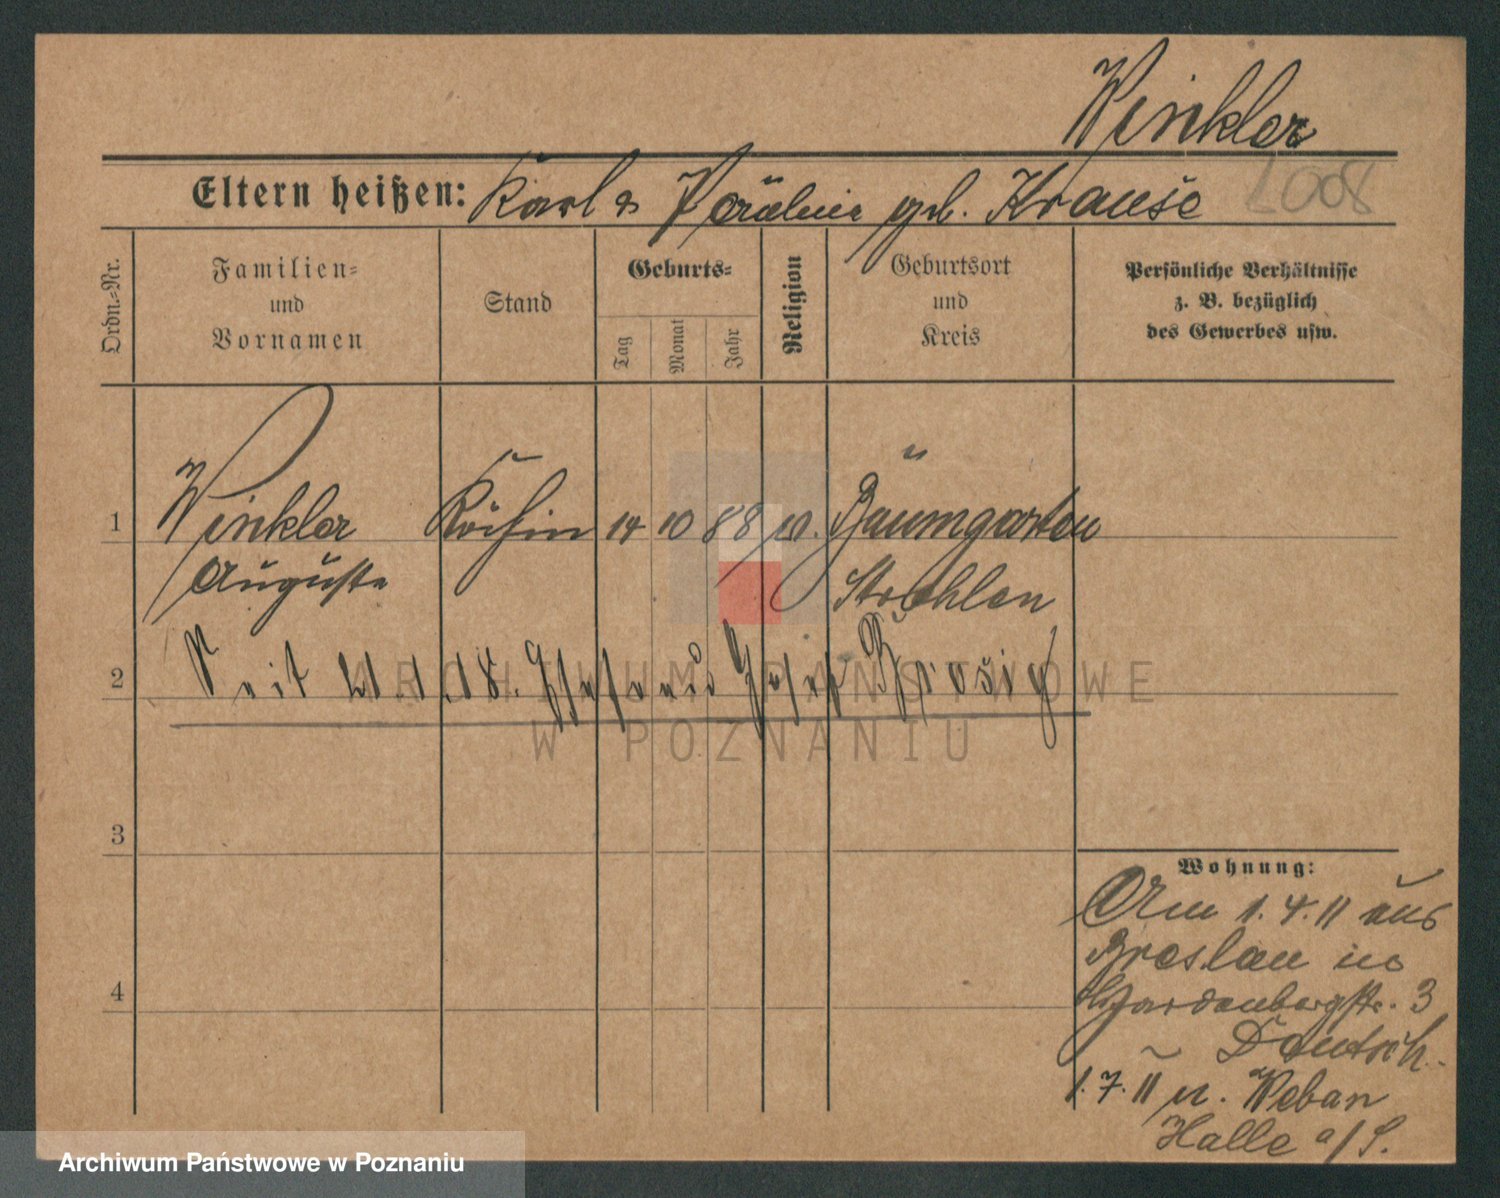 Winkler
Eltern heißen: Karl & Pauline geb. Krause
Ordn.-Nr.
Familien-
und
Vornamen
Stand
Geburts-
Tag
Monat
Jahr
Religion
Geburtsort
und
Kreis
Persönliche Verhältnisse
z. B. bezüglich
des Gewerbes usw.
1
Winkler Köchin 14 10 88 ev. Baumgarten
Auguste
Strehlen
2
Seit 21.1.18. Ehefrau Josef Brosig
3
4
Wohnung:
Am 1.4.11 aus
Breslau in
Hardenbergstr. 3
Deutsch.
1.7.11 n.
Halle a/S.
ARCHIWUM PAŃSTWOWE
W POZNANIU
Archiwum Państwowe w Poznaniu